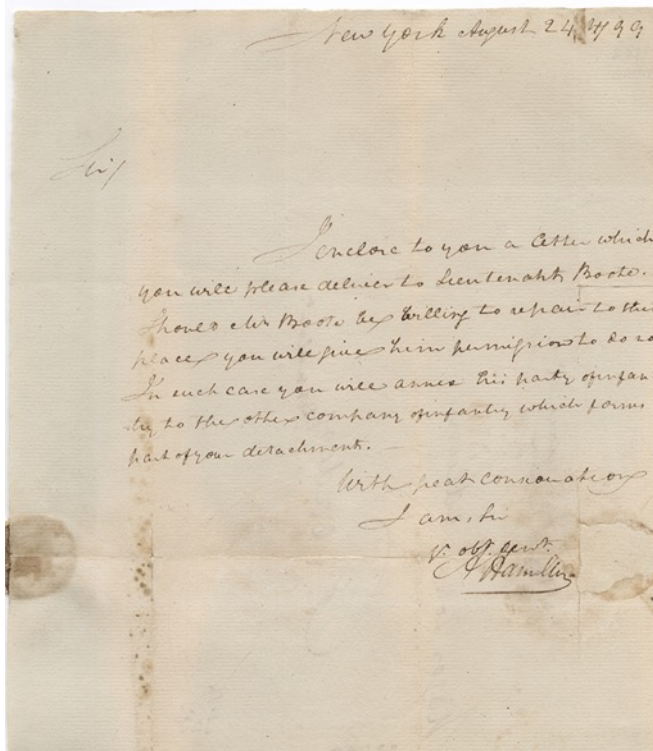 New York August 24, 1799
Sir/
I enclose to you a letter which
you will please deliver to Lieutenant Boote.
Should Mr Boote be willing to repair to this
place you will give him permission to do so
In such case you will annex his party of infan
try to the other company of infantry which forms
part of your detachment.
With great consideration
I am, Sir
yr. obt. servt.
A Hamilton